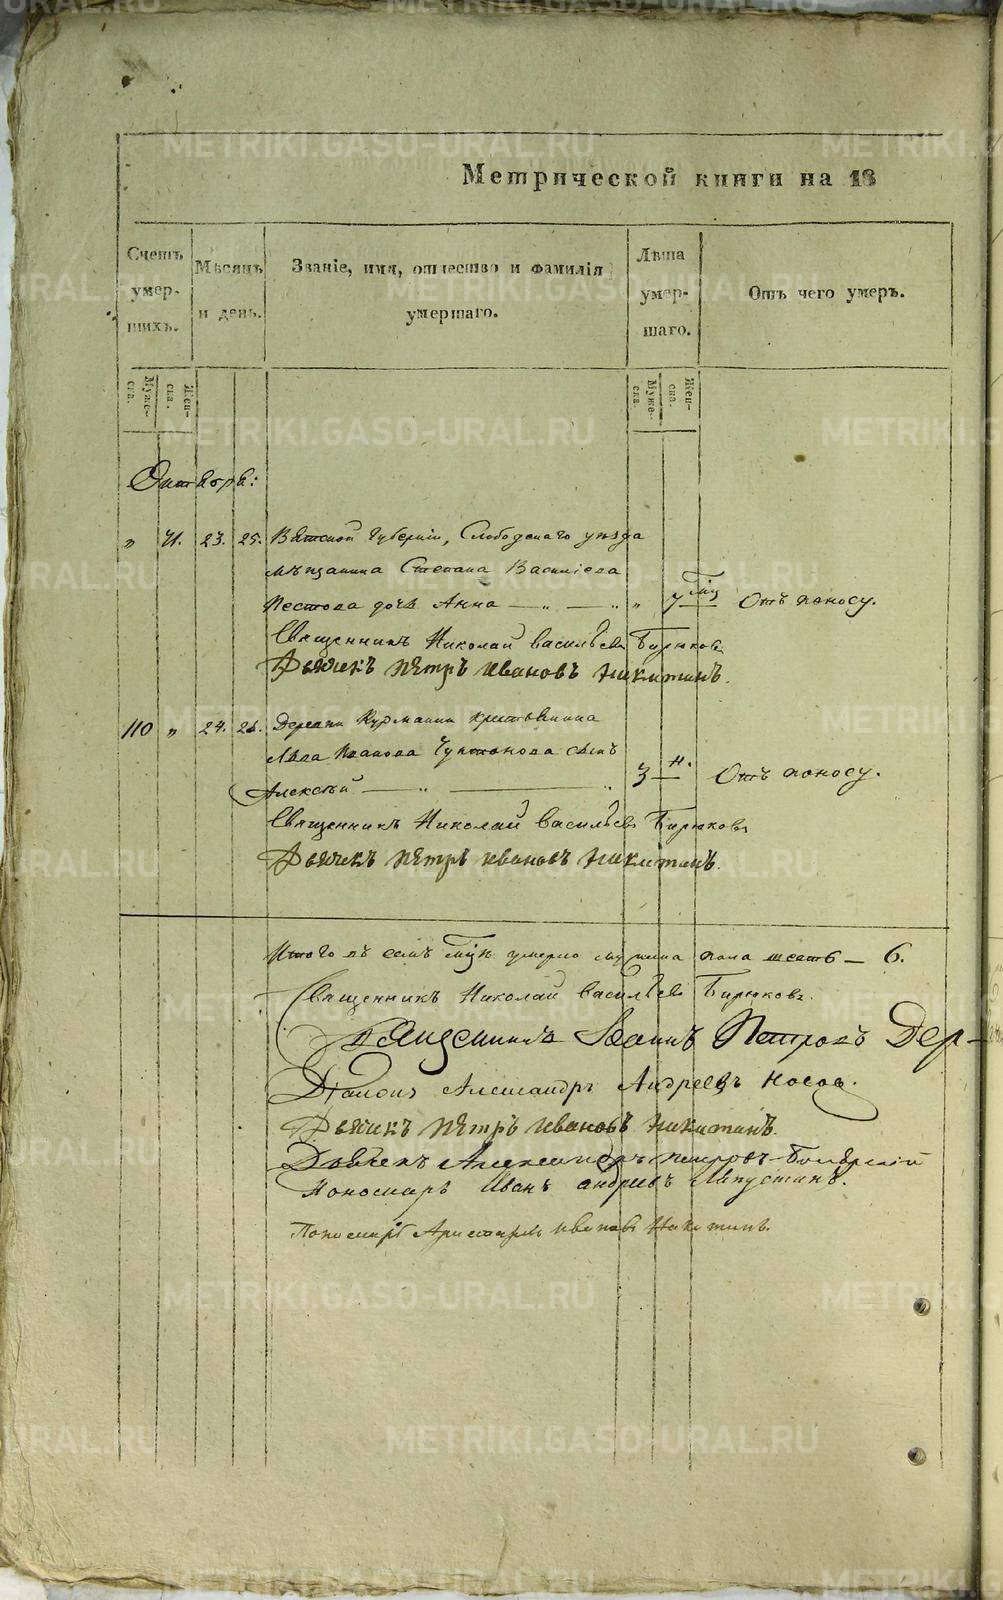 Метрической книги на 18
Счетъ умершихъ.
Мѣсяцъ и день.
Званіе, имя, отчество и фамилія умершаго.
Лѣта умершаго.
Отъ чего умеръ.
Мужеска.
Женска.
Мужеска.
Женска.
Октября:
„ 71. 23. 25. Вятской Губерніи, Слободскаго уѣзда
мѣщанина Степана Василіева
Пестова дочь Анна — „ — „ „ 7 Отъ поносу.
Священникъ Николай Васильевъ Бирюковъ
Дьячекъ Пѣтръ Ивановъ Никитинъ.
110 „ 24. 26. Деревни Курманки крестьянина
Ивана сынъ
Алексѣй — „ — „ 3 н. Отъ поносу.
Священникъ Николай Васильевъ Бирюковъ
Дьячекъ Пѣтръ Ивановъ Никитинъ.
Итого въ семъ умерло мужеска пола шесть — 6.
Священникъ Николай Васильевъ Бирюковъ.
Священникъ Іоаннъ Петровъ Дер-
Діаконъ Александръ Андреевъ Носовъ.
Дьячекъ Пѣтръ Ивановъ Никитинъ.
Дьячекъ Александръ Петровъ
Пономарь Иванъ Андреевъ Лапустинъ.
Пономарь Аристархъ Ивановъ Никитинъ.
METRIKI.GASO-URAL.RU